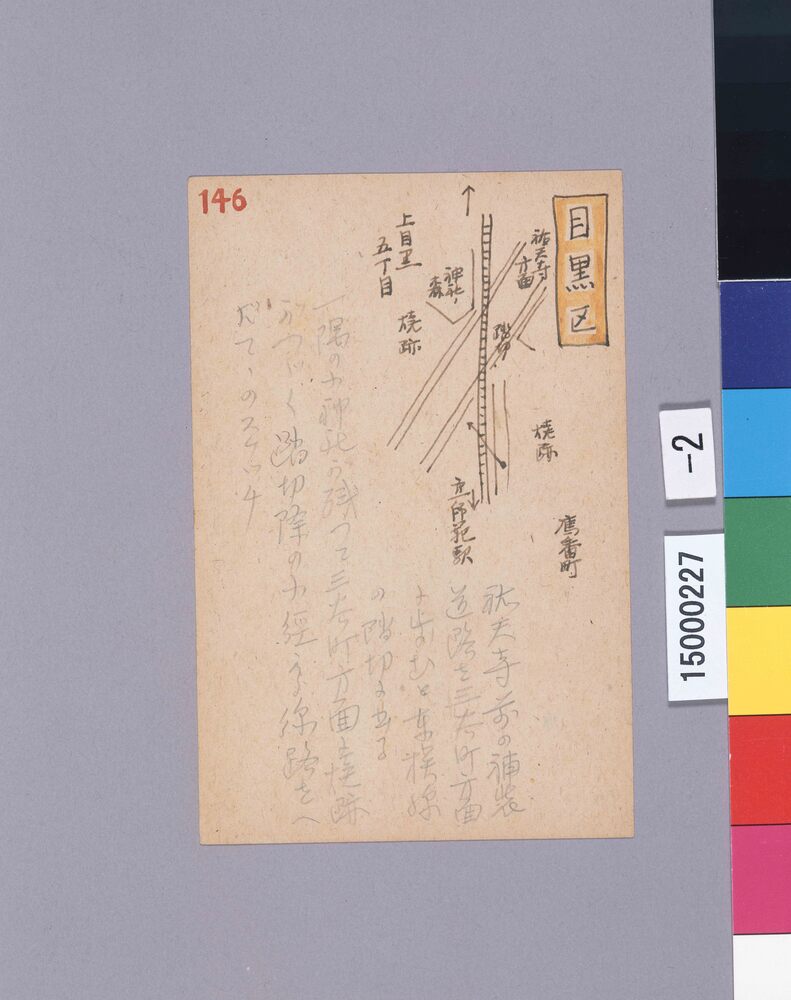 146
目黒区
祐天寺
方面
踏切
神社ノ
森
上目黒
五丁目
焼跡
焼跡
鷹番町
祐天寺前の補装
道路を三谷町方面
に歩むと東横線
の踏切に出る
一隅の小神社が残って三谷町方面も焼跡
がつづく踏切際の小経から線路をへ
だてゝのスケッチ
-2
15000227